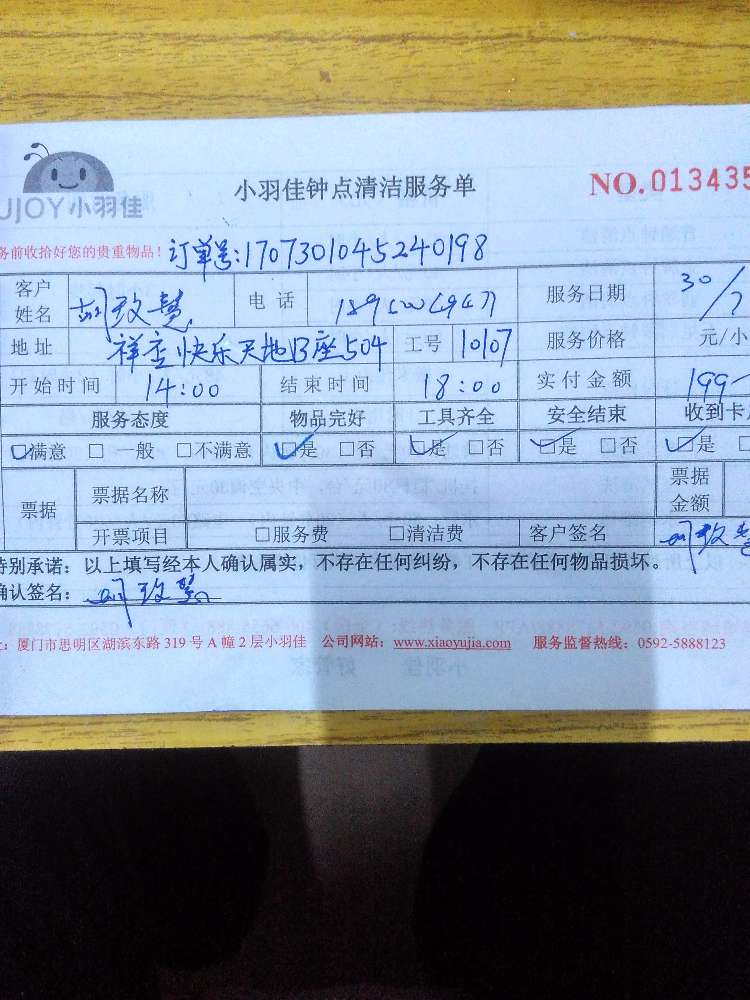 小羽佳钟点清洁服务单
NO.013435
UJOY小羽佳
务前收拾好您的贵重物品! 订单号:1707301045240198
客户姓名 胡玫慧 电话 服务日期 30/7
地址 祥店快乐天地B座504 工号 10107 服务价格 元/小
开始时间 14:00 结束时间 18:00 实付金额 199
服务态度 物品完好 工具齐全 安全结束 收到卡
满意 一般 不满意 是 否 是 否 是 否 是
票据 票据名称 票据金额
开票项目 服务费 清洁费 客户签名 胡玫慧
特别承诺:以上填写经本人确认属实,不存在任何纠纷,不存在任何物品损坏。
确认签名: 胡玫慧
厦门市思明区湖滨东路 319 号 A 幢 2 层小羽佳 公司网站:www.xiaoyujia.com 服务监督热线:0592-5888123